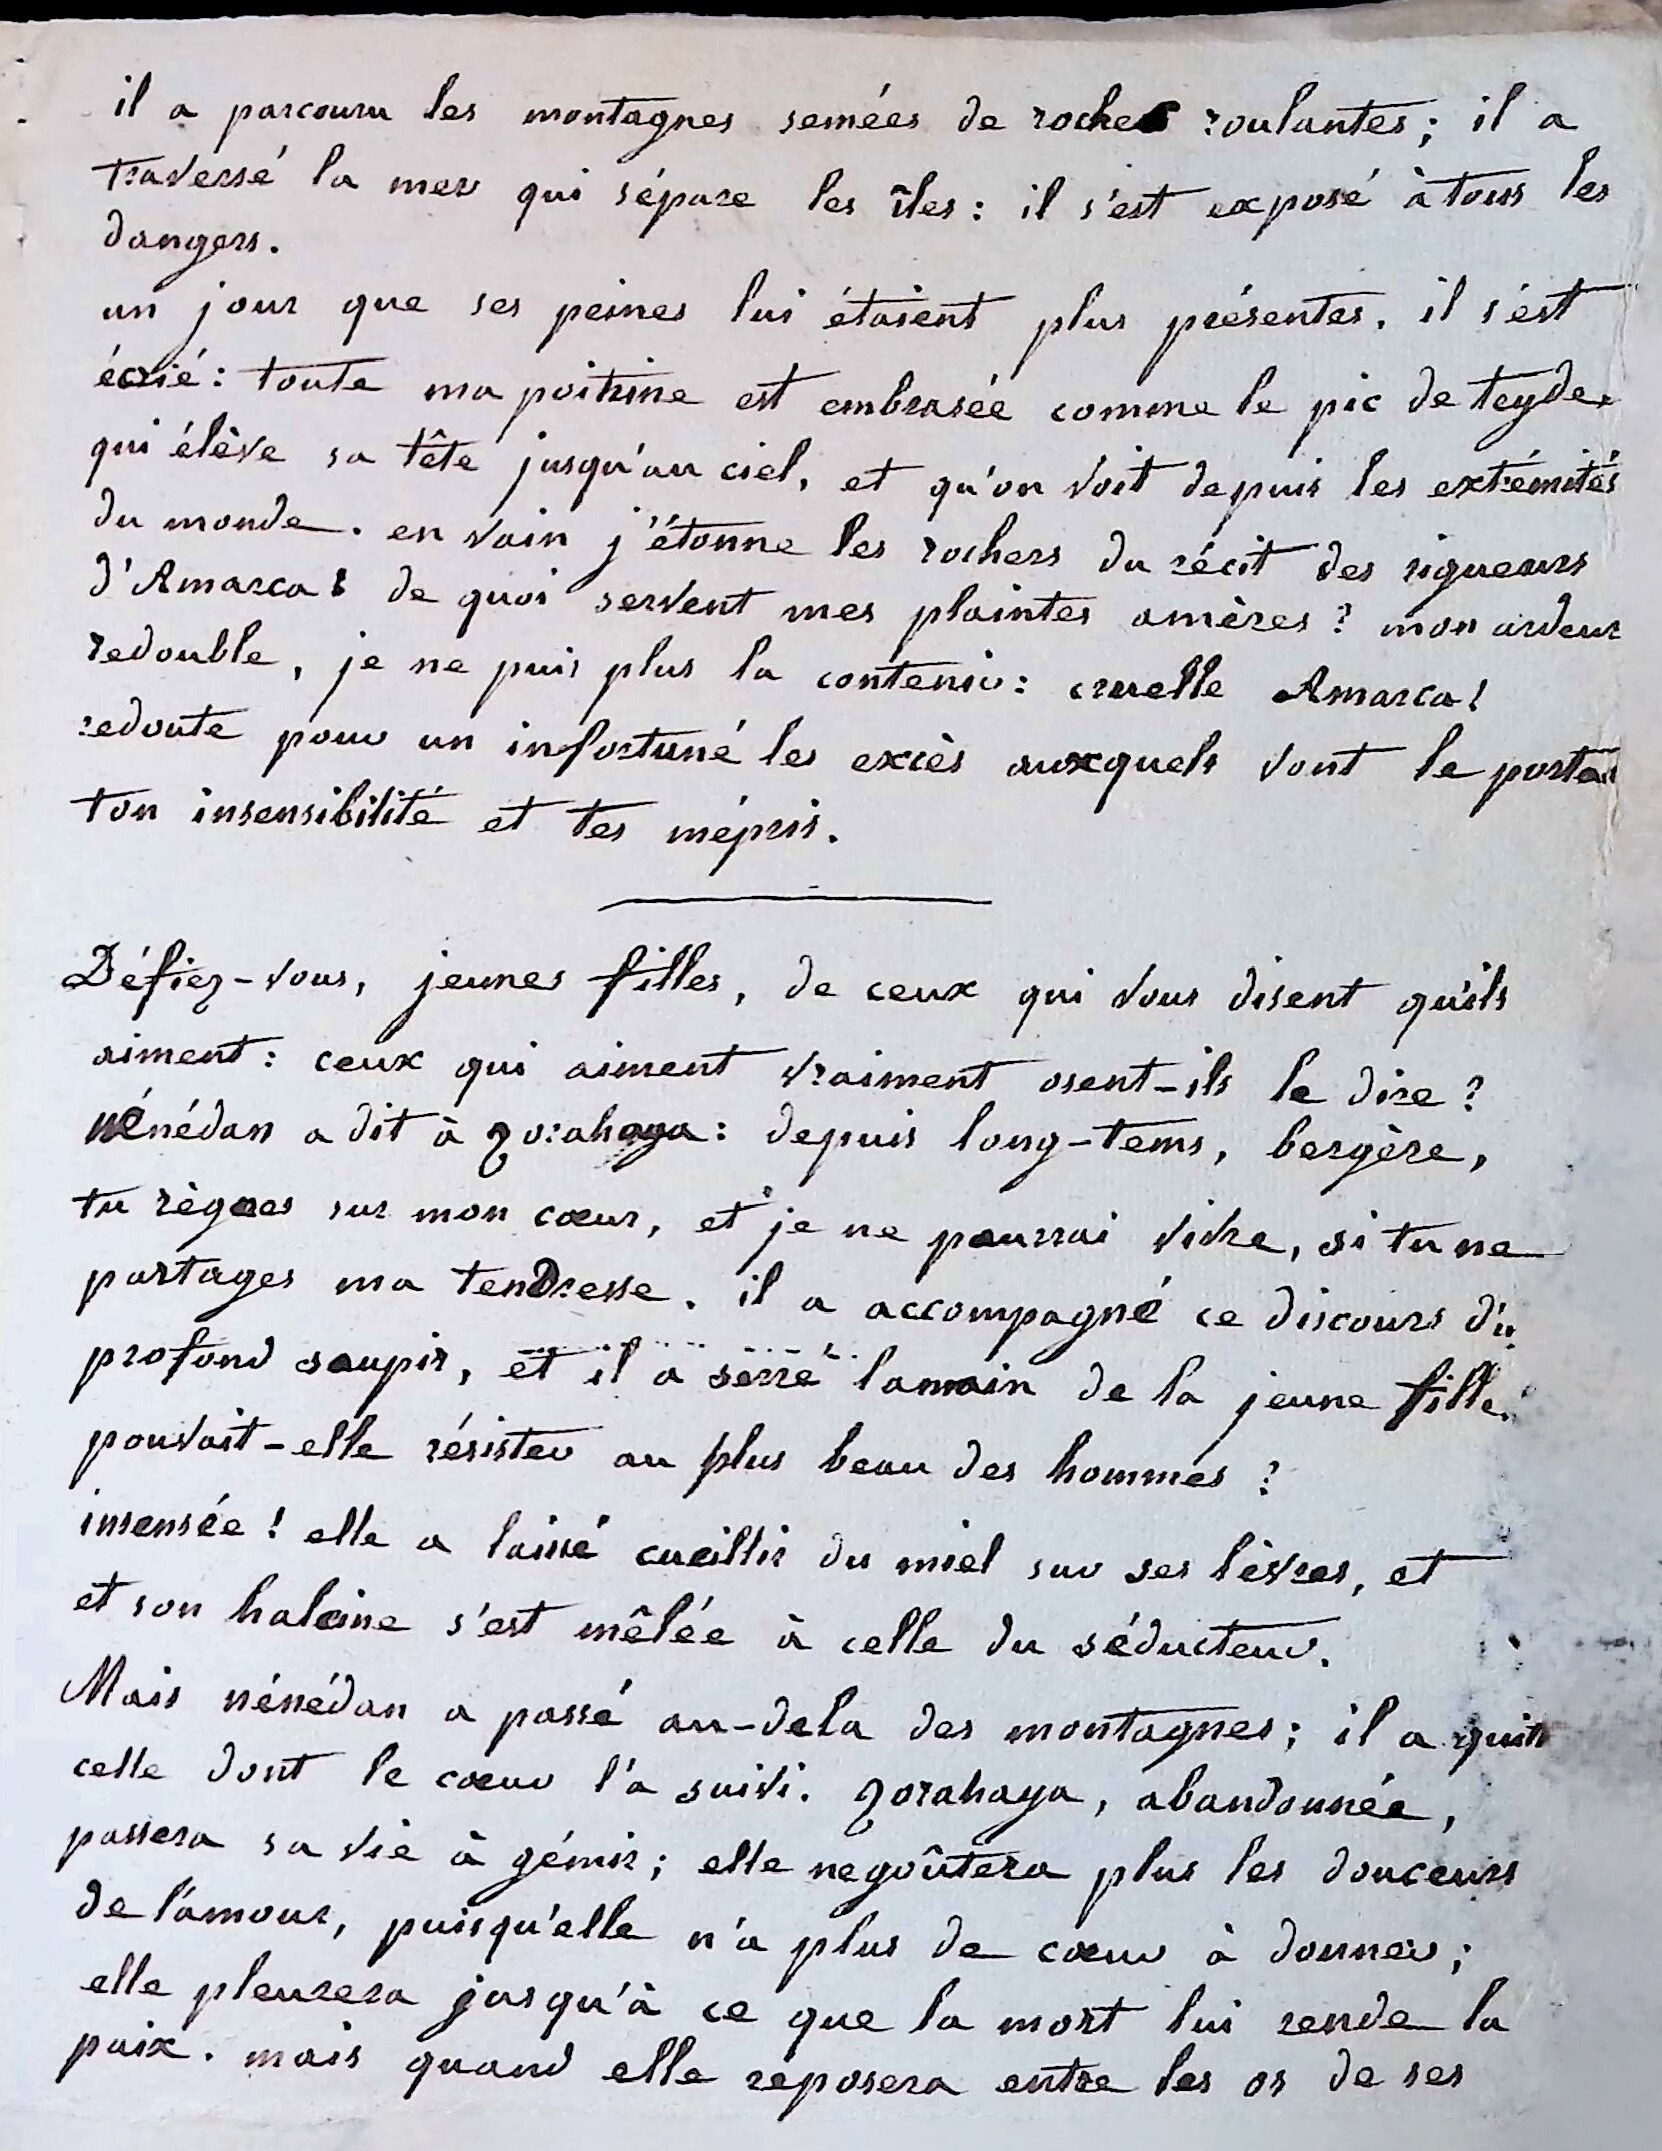 il a parcouru les montagnes semées de roches roulantes; il a
traversé la mer qui sépare les îles: il s'est exposé à tous les
dangers.
un jour que ses peines lui étaient plus présentes, il s'est
écrié: toute ma poitrine est embrasée comme le pic de teyde,
qui élève sa tête jusqu'au ciel, et qu'on voit depuis les extrémités
du monde. en vain j'étonne les rochers du récit des rigueurs
d'Amarca! de quoi servent mes plaintes amères? mon ardeur
redouble, je ne puis plus la contenir: cruelle Amarca!
redoute pour un infortuné les excès auxquels vont le porter
ton insensibilité et tes mépris.
Défiez-vous, jeunes filles, de ceux qui vous disent qu'ils
aiment: ceux qui aiment vraiment osent-ils le dire?
nénédan a dit à zorahaya: depuis long-tems, bergère,
tu règnes sur mon cœur, et je ne pourrai vivre, si tu ne
partages ma tendresse. il a accompagné ce discours d'un
profond soupir, et il a serré la main de la jeune fille.
pouvait-elle résister au plus beau des hommes?
insensée! elle a laissé cueillir du miel sur ses lèvres, et
et son haleine s'est mêlée à celle du séducteur.
Mais nénédan a passé au-dela des montagnes; il a quit
celle dont le cœur l'a suivi. zorahaya, abandonnée,
passera sa vie à gémir; elle ne goûtera plus les douceurs
de l'amour, puisqu'elle n'a plus de cœur à donner;
elle pleurera jusqu'à ce que la mort lui rende la
paix. mais quand elle reposera entre les os de ses